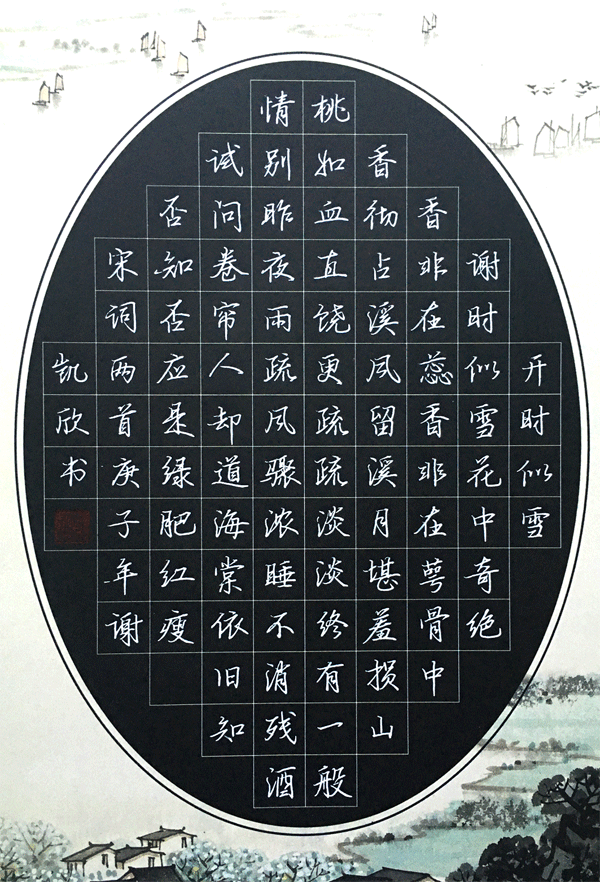 开时似雪
谢时似雪花中奇绝
香非在蕊香非在萼骨中
香彻占溪风留溪月堪羞损山
桃如血直饶更疏疏淡淡终有一般
情别昨夜雨疏风骤浓睡不消残酒
试问卷帘人却道海棠依旧知
否知否应是绿肥红瘦
宋词两首庚子年谢
凯欣书